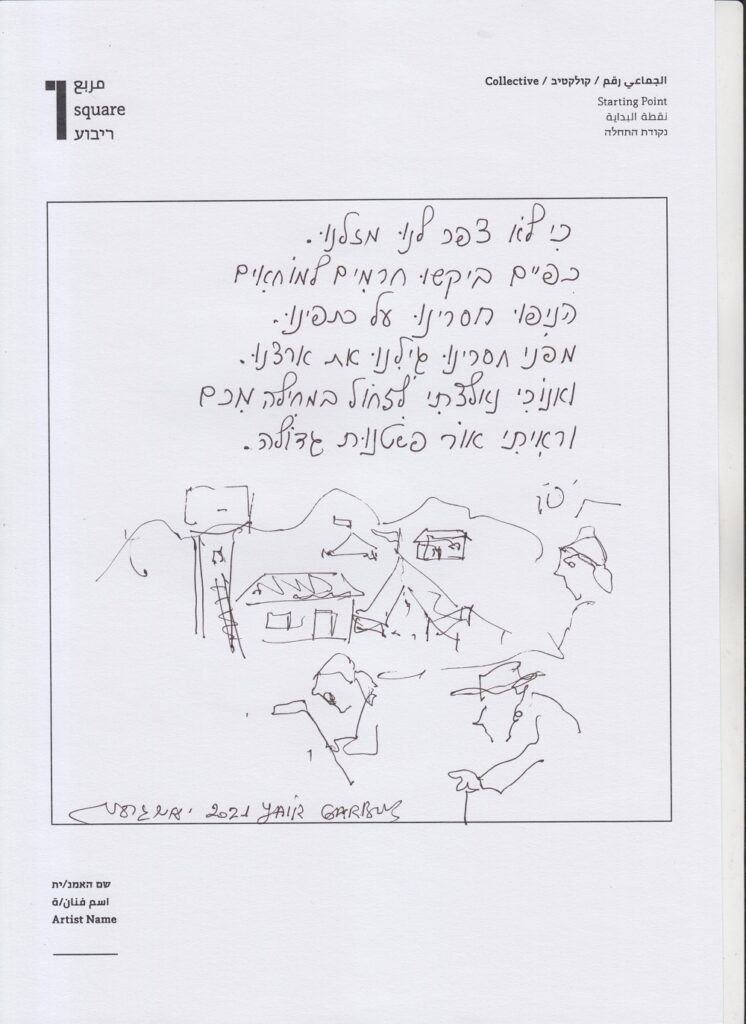 1
مربع
square
ריבוע
Collective / קולקטיב / الجماعي رقم
Starting Point
نقطة البداية
נקודת התחלה
כי לא צפר לנו מזלנו.
כפיים ביקשו חרמים למוחאים
הניפו חסרינו על כתפינו.
מפני חסרינו גילנו את ארצנו.
ואנוכי נאלצתי לזחול במחילה מכם
וראיתי אור פשטנות גדולה.
2021 YAIR GARBUZ
שם האמנ/ית
اسم فنان/ة
Artist Name